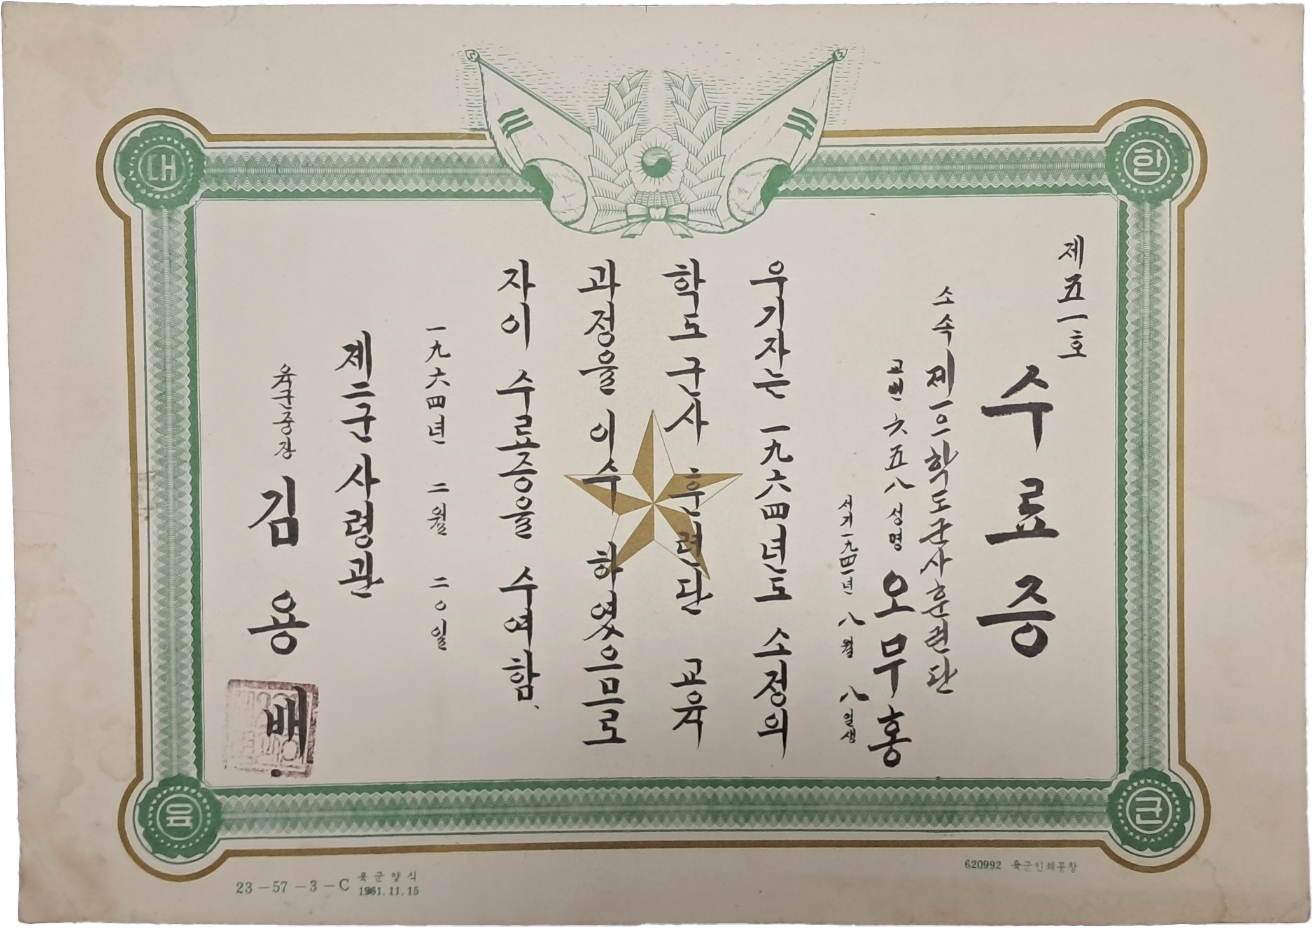 제五一호
수료증
소속 제一은학도군사훈련단
교번 六五八 성명 오무홍
서기一九四一년 八월 八일생
우기자는 一九六四년도 소정의
학도 군사 훈련단 교육
과정을 이수 하였으므로
자이 수료증을 수여함.
一九六四년 二월 二○일
제二군 사령관
육군중장 김용배
대 한
육 군
23-57-3-C 육군양식 1961.11.15
620992 육군인쇄공창